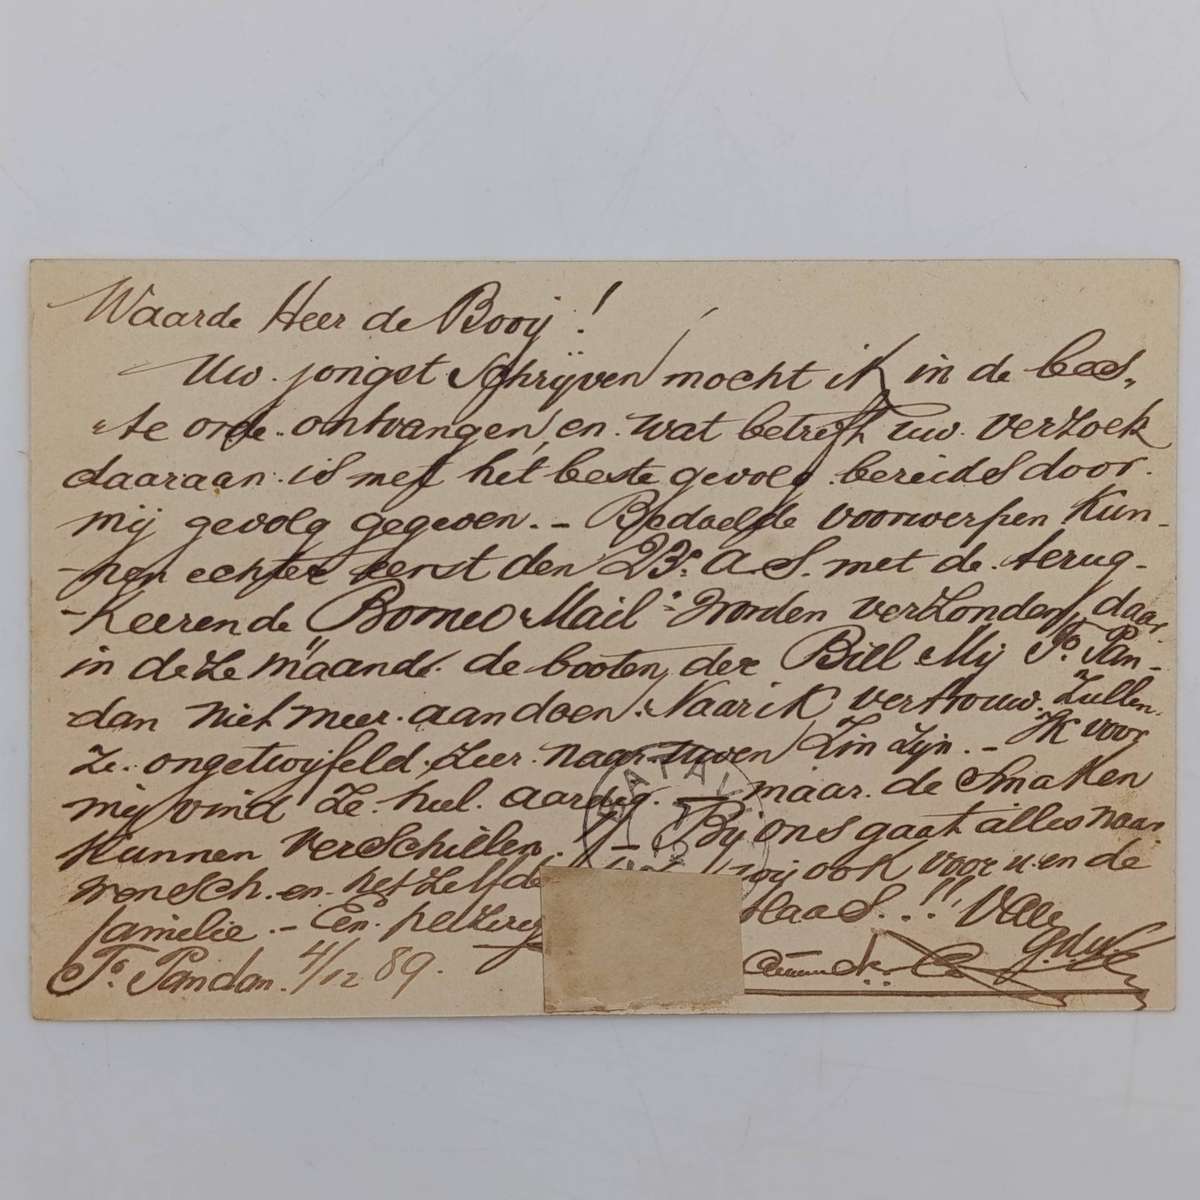 Waarde Heer de Booij!
Uw. jongst Schrijven mocht ik in de bees„
„te orde. ontvangen, en. wat betreft uw. verzoek
daaraan. is met het beste gevolg. bereids door.
mij gevolg gegeven. – Bedoelde voorwerpen Kun-
-nen echter eerst den 23e. a. s. met de. terug-
-keerende Borneo Mail worden verzonden, daar.
in deze maand. de booten, der Bill Mij Tg. Pan-
dan niet meer. aandoen. Naar ik vertrouw. Zullen.
Ze. ongetwijfeld. zeer. naar uwen Zin Zijn. – Ik voor
mij vind Ze. heel. aardig. – maar. de Smaken
Kunnen verschillen. – Bij ons gaat alles naar
wensch. en. het zelfde mij ook voor u en de
familie. – En
Tg. Pandan. 4/12 89.
BATAVI